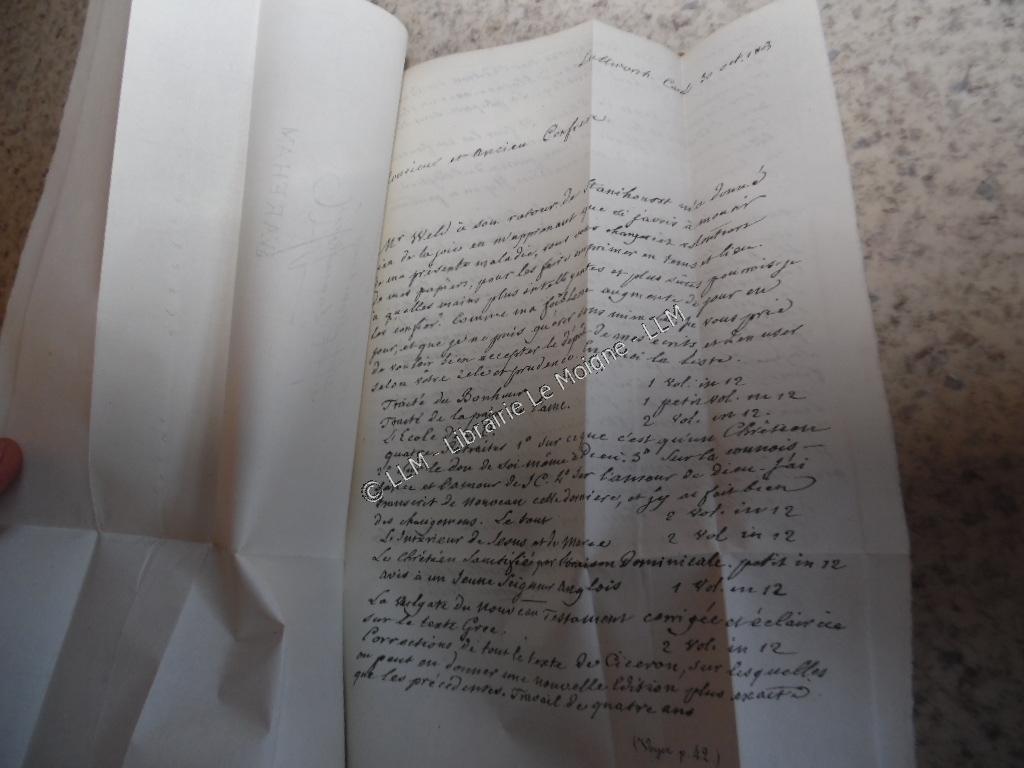 Lullworth Castle 30 oct. 1803
Monsieur et Ancien Confrere
Mr Weld à son retour de Stanihourst m'a donné
bien de la joie en m'apprenant que si j'avois à mourir
de ma présente maladie, vous vous chargiez volontiers
de mes papiers, pour les faire imprimer en tems et lieu.
à quelles mains plus intelligentes et plus sûres pourrois-je
les confier? Comme ma foiblesse augmente de jour en
jour, et que je ne puis guérir sans miracle, je vous prie
de vouloir bien accepter le dépôt de mes écrits et d'en user
selon votre zele et prudence. En voici la liste.
Traité du Bonheur 1 vol. in 12
Traité de la paix de l'ame. 1 petit vol. in 12
L'Ecole de 2 vol. in 12.
quatre traités 1° sur ce que c'est qu'un Chrétien
2° sur le don de soi même à Dieu. 3° sur la connois-
sance et l'amour de J C. 4° sur l'amour de Dieu. j'ai
transcrit de nouveau cette derniere, et j'y ai fait bien
des changemens. Le tout 2 vol. in 12
L'Intérieur de Jesus et de Marie 2 vol in 12
Le Chrétien sanctifié par l'oraison Dominicale. petit in 12
avis à un Jeune Seigneur Anglois 1 vol. in 12
La Vulgate du Nouveau Testament corrigée et éclaircie
sur le texte Grec. 2 vol. in 12
Corrections de tout le texte de Ciceron, sur lesquelles
on peut en donner une nouvelle Edition plus exacte
que les précédentes. Travail de quatre ans
(Voyez p. 42.)
© LLM - Librairie Le Moigne - LLM